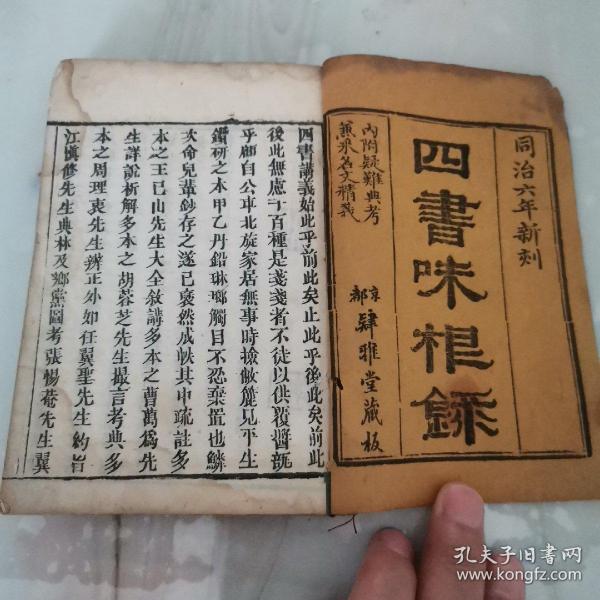 同治六年新刻
四書味根錄
內附疑難典考
兼采名文精義
京都肆雅堂藏板
四書講義始此乎前此矣止此乎後此矣前此
後此無慮千百種是戔戔者不徒以供覆醬瓿
乎顧自公車北旋家居無事時撿敝簏見平生
鑽研之本甲乙丹鉛琳瑯觸目不忍棄置也鱗
次命兒輩鈔存之遂已裒然成帙其中疏註多
本之王巳山先生大全敘講多本之曹萬為先
生詳說析解多本之胡蓉芝先生撮言考典多
本之周理衷先生辨正外如任翼聖先生約旨
江慎修先生典林及鄉黨圖考張惕菴先生翼
孔夫子旧书网
www.kongfz.com